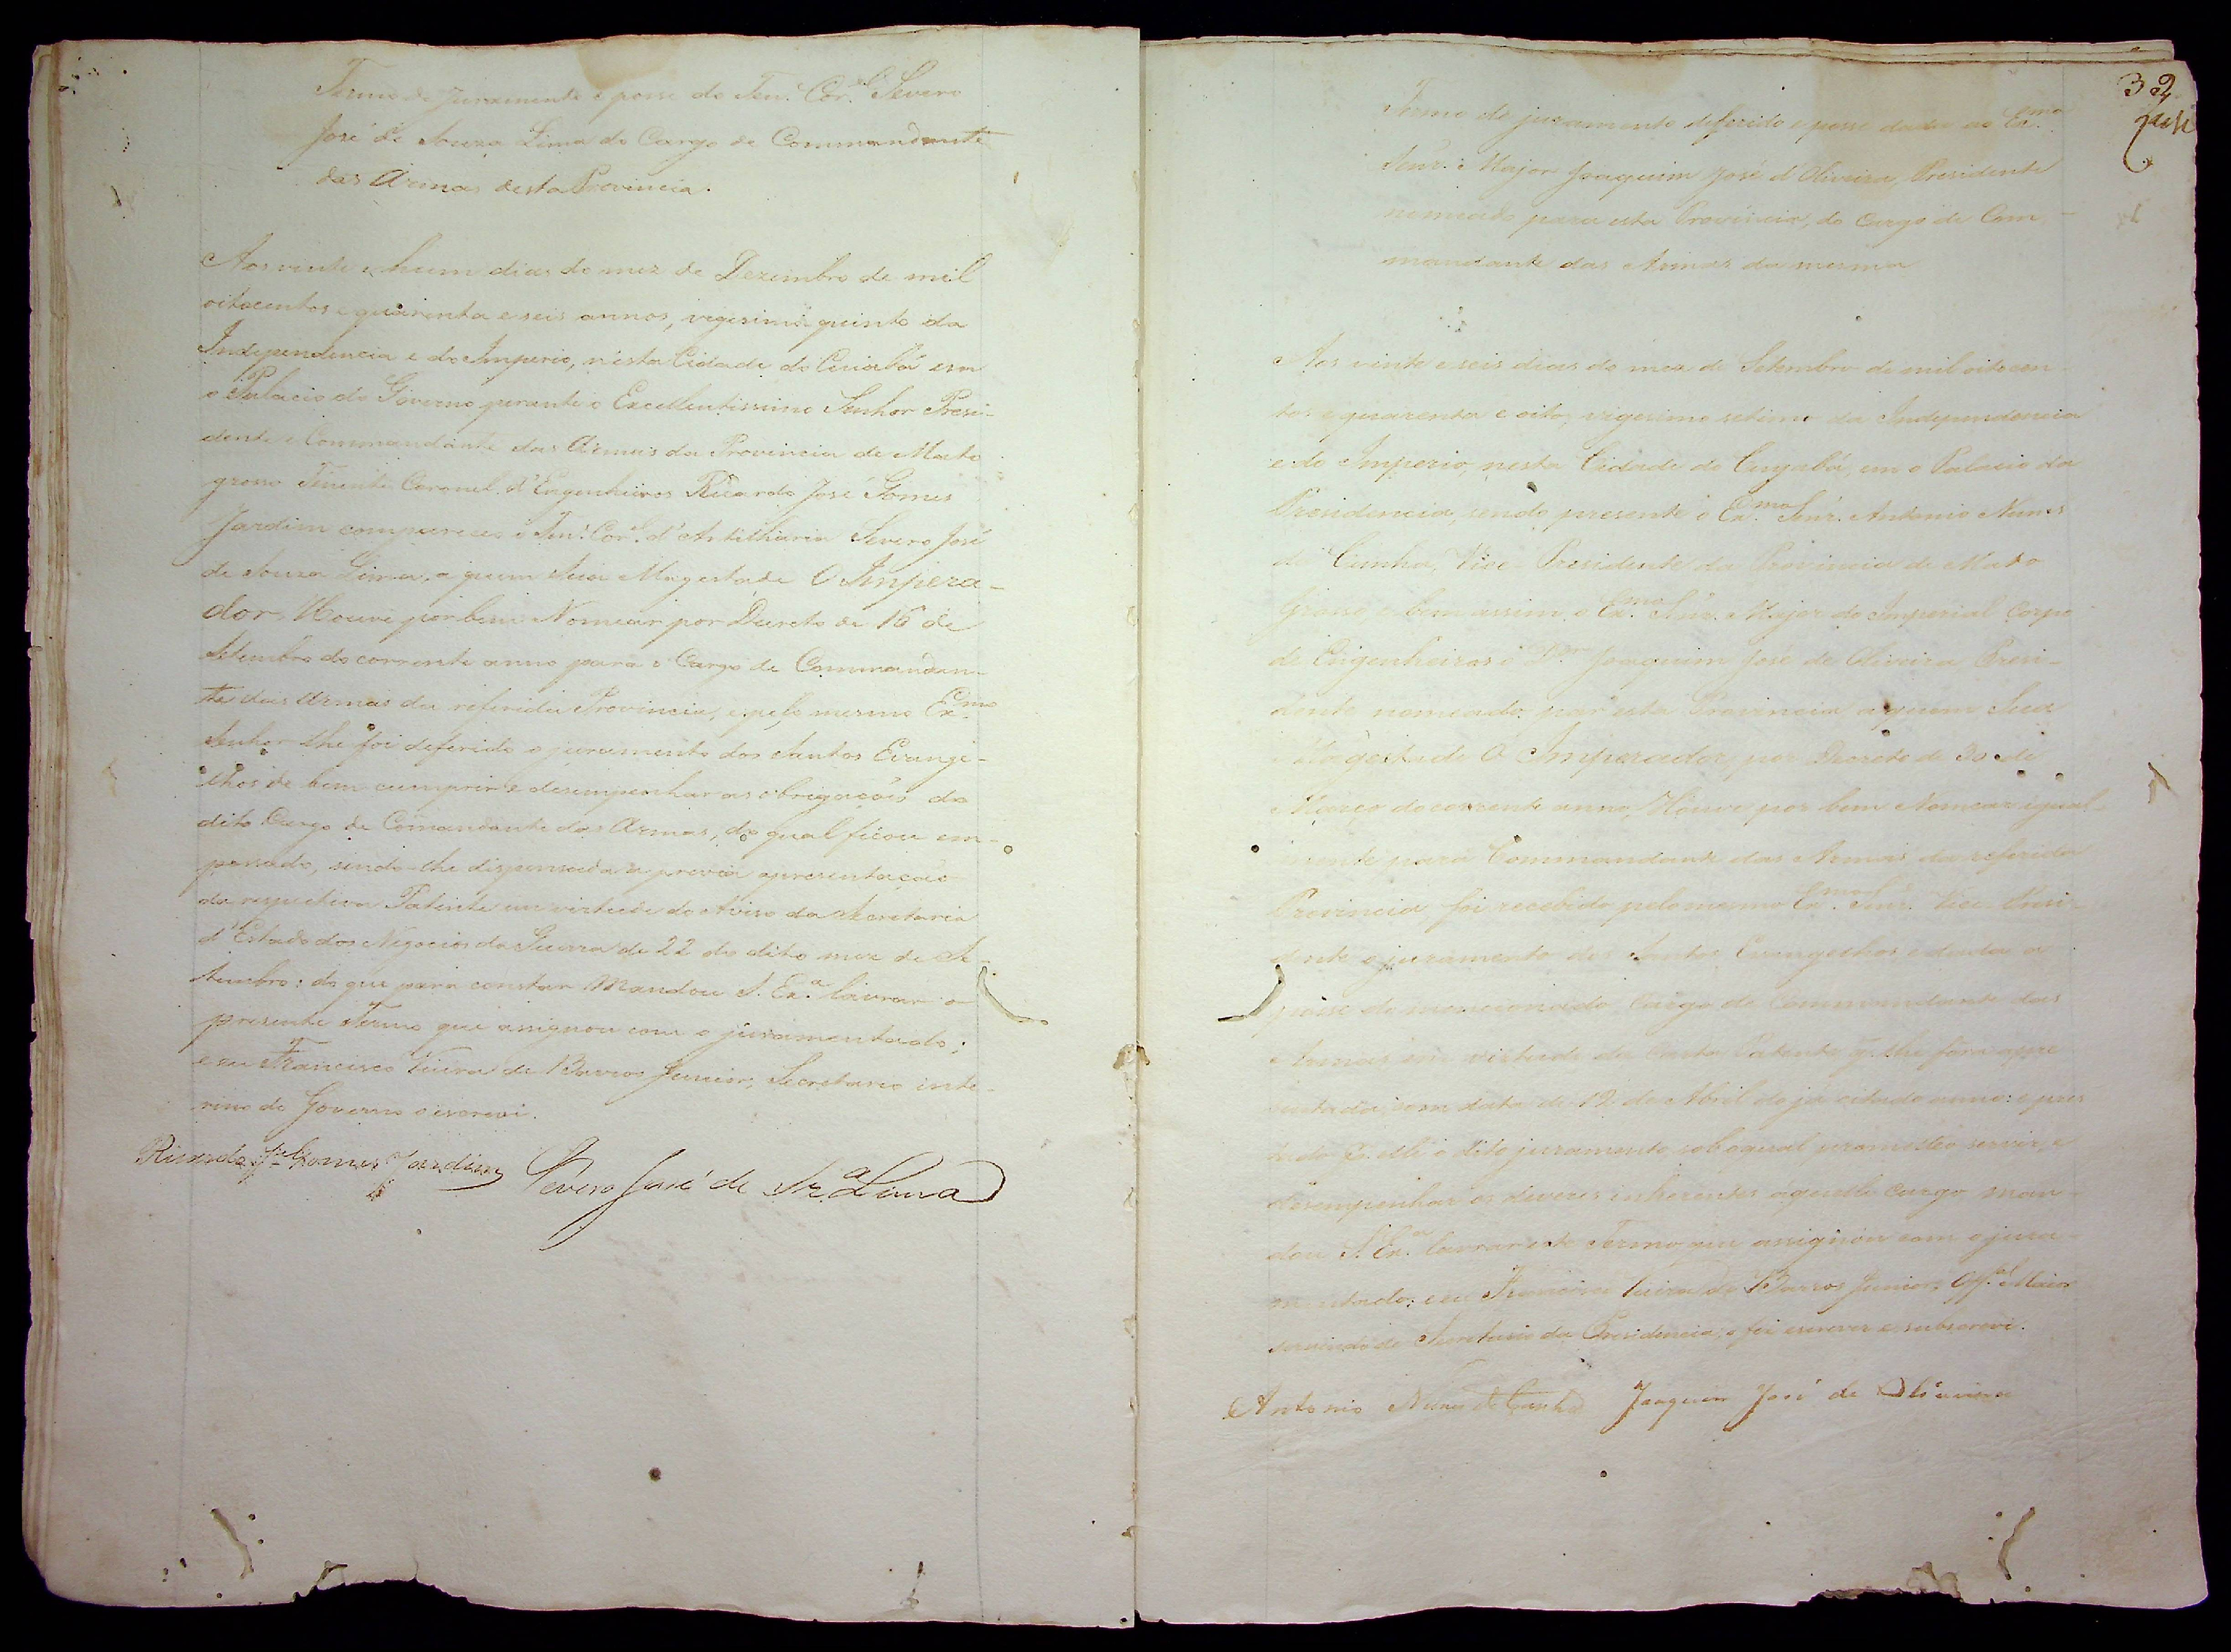 Termo de Juramento e posse do Ten. Cor.el Severo
José de Souza Lima do Cargo de Commandante
das Armas desta Provincia.
Aos vinte e hum dias do mez de Dezembro de mil
oitocentos e quarenta e seis annos, vigesimo quinto da
Independencia e do Imperio, n'esta Cidade do Cuiabá em
o Palacio do Governo perante o Excellentissimo Senhor Presi-
dente e Commandante das Armas da Provincia de Mato
grosso Tenente Coronel d'Engenheiros Ricardo José Gomes
Jardim compareceo o Ten.e Cor.el d'Artilharia Severo José
de Souza Lima, a quem Sua Magestade O Impera-
dor Houve por bem Nomear por Decreto de 16 de
Setembro do corrente anno para o Cargo de Commandan-
te das Armas da referida Provincia, e pelo mesmo Ex.mo
Senhor lhe foi deferido o juramento dos Santos Evange-
lhos de bem cumprir e desempenhar as obrigações do
dito Cargo de Comandante das Armas, do qual ficou em-
possado, sendo-lhe dispensada a previa apresentação
da respectiva Patente em virtude do Aviso da Secretaria
d'Estado dos Negocios da Guerra de 22 do dito mez de Se-
tembro: do que para constar Mandou S. Ex.a lavrar o
presente Termo que assignou com o juramentado;
e eu Francisco Vieira de Barros Junior, Secretario inte-
rino do Governo o escrevi.
Ricardo Jé Gomes Jardim Severo José de Sz.a Lima
32
Termo de juramento deferido e posse dada ao Ex.mo
Senr. Major Joaquim José d'Oliveira, Presidente
nomeado para esta Provincia, do Cargo de Com-
mandante das Armas da mesma
Aos vinte e seis dias do mez de Setembro de mil oitocen-
tos e quarenta e oito, vigesimo setimo da Independencia
e do Imperio, nesta Cidade do Cuyabá, em o Palacio da
Presidencia, sendo presente o Ex.mo Senr. Antonio Nunes
da Cunha, Vice-Presidente da Provincia de Mato
Grosso e bem assim o Ex.mo Senr. Major do Imperial Corpo
de Engenheiros o D.or Joaquim José de Oliveira Presi-
dente nomeado par esta Provincia a quem Sua
Magestade O Imperador por Decreto de 30 de
Março do corrente anno, Houve por bem Nomear igual-
mente para Commandante das Armas da referida
Provincia foi recebido pelo mesmo Ex.mo Senr. Vice Presi-
dente o juramento dos Santos Evangelhos e dada a
posse do mencionado Cargo de Commandante das
Armas em virtude da Carta Patente q. lhe fora apre-
sentada, com data de 12 de Abril do já citado anno: e pres-
tado elle o dito juramento, sob o qual prometteo servir, e
desempenhar os deveres inherentes áquelle cargo man-
dou S. Ex.a lavrar este Termo que assignou com o jura-
mentado: e eu Francisco Vieira de Barros Junior, Off.al Maior
servindo de Secretario da Presidencia, o fiz escrever e subscrevi.
Antonio Nunes da Cunha Joaquim José de Oliveira